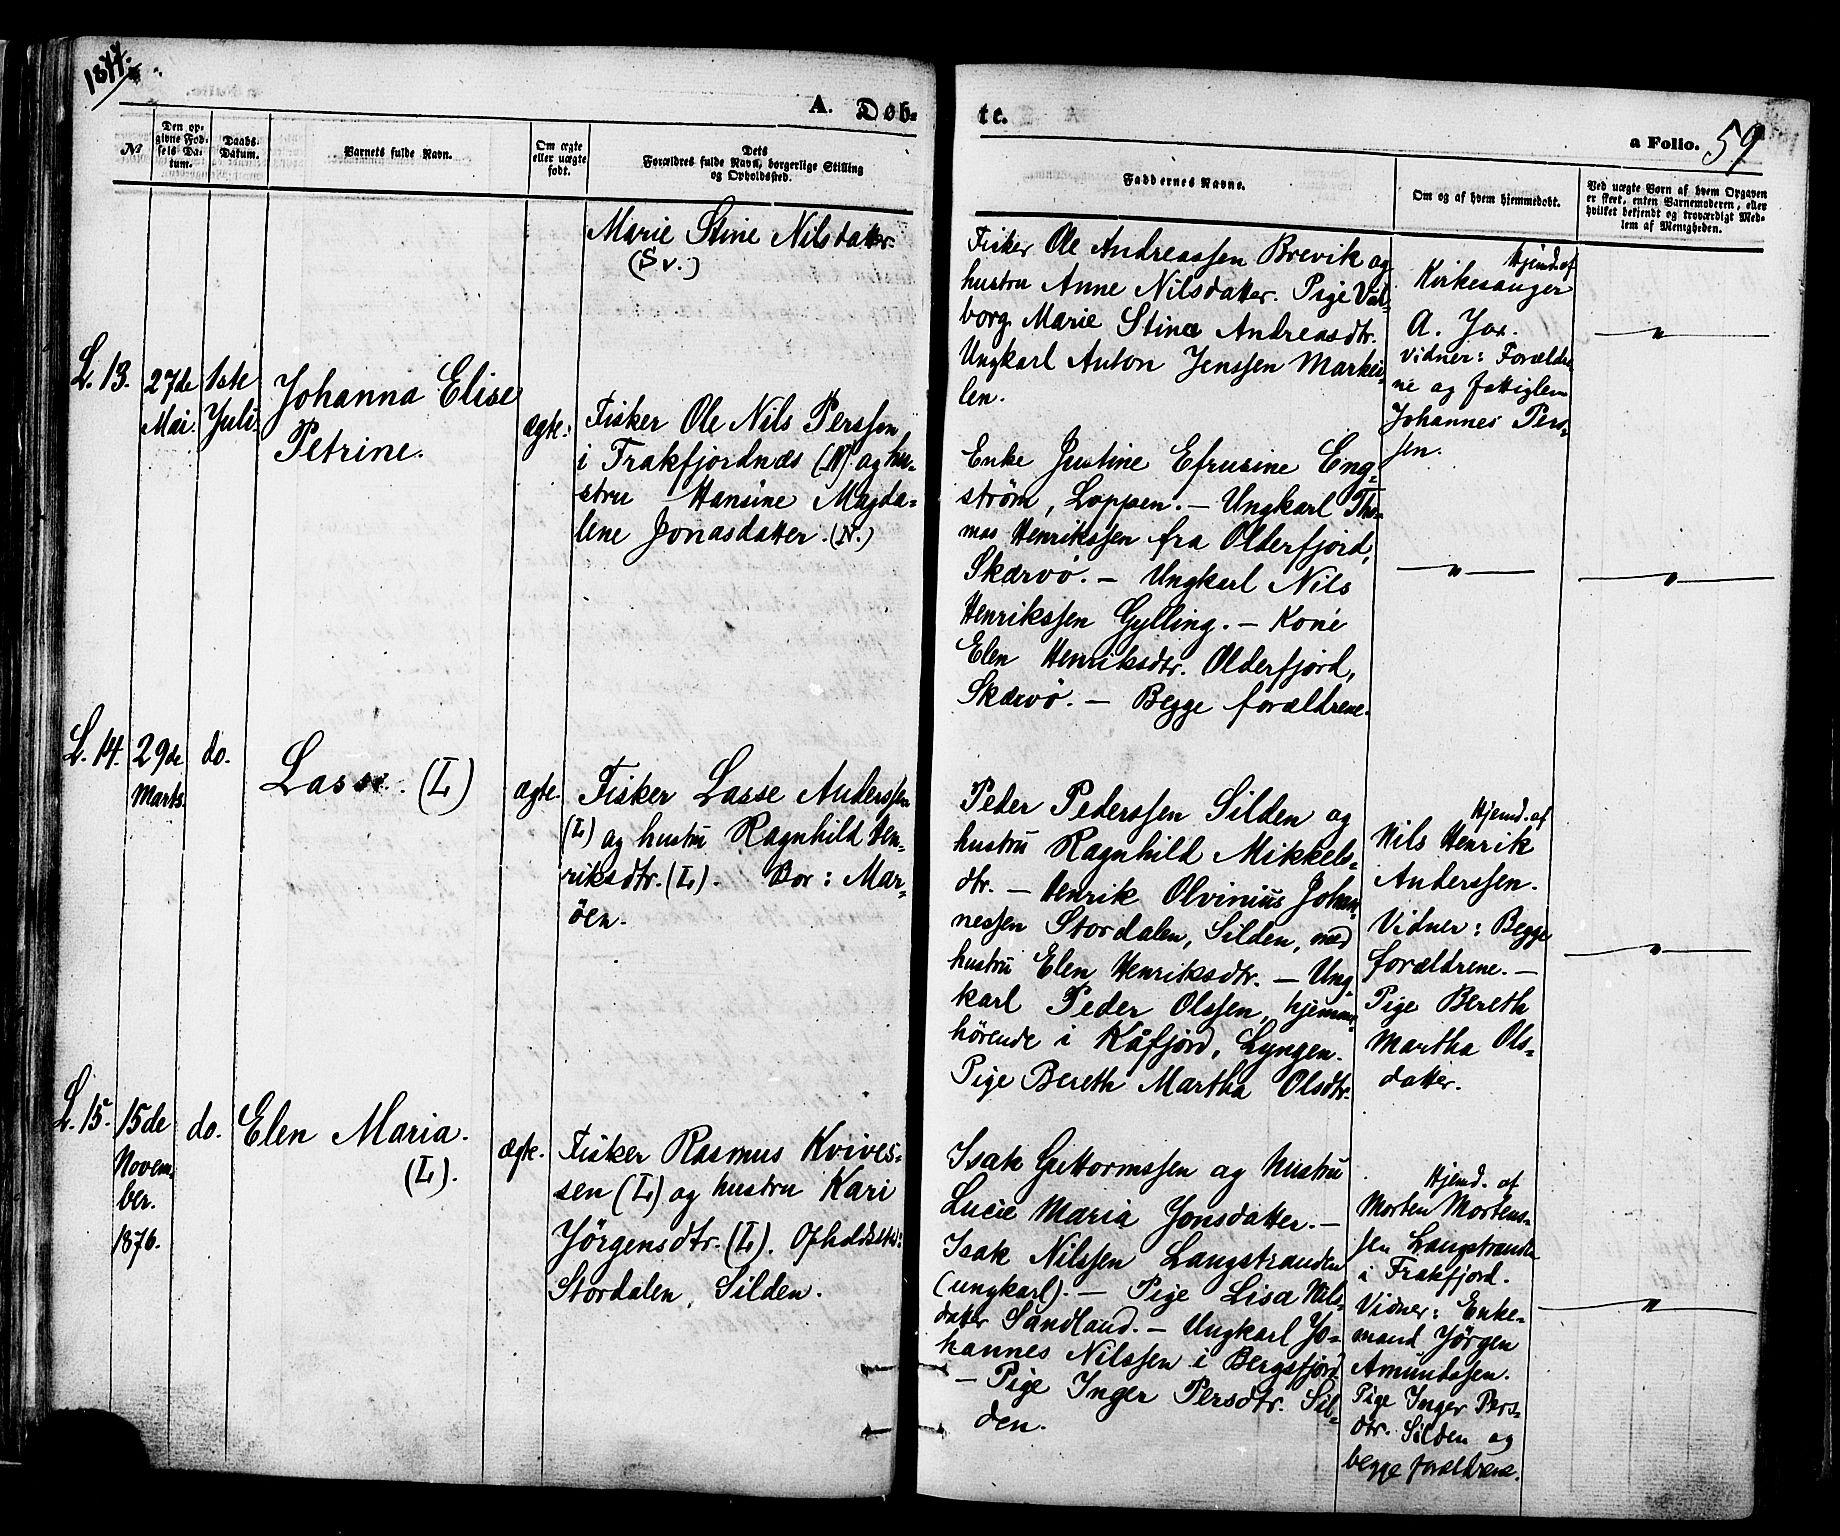 1877.
A. Døb-
te.
a Folio. 59
No
Den op-
givne Fød-
sels Da-
tum.
Daabs-
Datum.
Barnets fulde Navn.
Om ægte
eller uægte
født.
Dets
Forældres fulde Navn, borgerlige Stilling
og Opholdssted.
Faddernes Navne.
Om og af hvem hjemmedøbt.
Ved uægte Børn af hvem Opgaven
er skeet, enten Barnemoderen, eller
hvilket bekjendt og troværdigt Med-
lem af Menigheden.
Marie Stine Nilsdatter.
(Sv.)
Fisker Ole Andreassen Brevik og
hustru Anne Nilsdatter. Pige Val-
borg Marie Stine Andreasdtr.
Ungkarl Anton Jenssen Markei-
len.
Hjemd. af
Kirkesanger
A. Jox.
Vidner: Forældre
ne og fattiglem
Johannes Pers-
sen.
"
L. 13.
27de
Mai.
1ste
Juli.
Johanna Elise
Petrine.
ægte.
Fisker Ole Nils Perssen
i Frakfjordnæs (N) og hu-
stru Hansine Magda-
lene Jonasdatter. (N.)
Enke Justine Efrusine Eng-
strøm, Loppen. — Ungkarl Tho-
mas Henrikssen fra Olderfjord,
Skærvö. — Ungkarl Nils
Henrikssen Gylling. — Kone
Elen Henriksdtr. Olderfjord,
Skærvö. — Begge forældrene.
"
"
L. 14.
29de
Marts.
do.
Lasse. (L)
ægte.
Fisker Lasse Anderssen
(L) og hustru Ragnhild Hen-
riksdtr. (L). Bor: Mar-
öen.
Peder Pederssen Silden og
hustru Ragnhild Mikkels-
dtr. — Henrik Olvinius Johan-
nessen Stordalen, Silden, med
hustru Elen Henriksdtr. — Ung-
karl Peder Olssen, hjemme-
hörende i Kåfjord, Lyngen.
Pige Bereth Martha Olsdtr.
Hjemd. af
Nils Henrik
Anderssen.
Vidner: Begge
forældrene. —
Pige Bereth
Martha Ols-
datter.
"
L. 15.
15de
Novem-
ber.
1876.
do.
Elen Maria.
(L).
ægte.
Fisker Rasmus Kvives-
sen (L) og hustru Kari
Jörgensdtr. (L). Opholdssted:
Stordalen, Silden.
Isak Guttormssen og hustru
Lucie Maria Jonsdatter. —
Isak Nilssen Langstranden
(ungkarl). — Pige Lisa Nils-
datter Sandland. — Ungkarl Jo-
hannes Nilssen i Bergsfjord
— Pige Inger Persdtr. Sil-
den.
Hjemd. af
Morten Mortens-
sen Langstranden
i Frakfjord.
Vidner: Enke-
mand Jörgen
Amundssen.
Pige Inger Pers-
dtr. Silden og
begge forældrene.
"